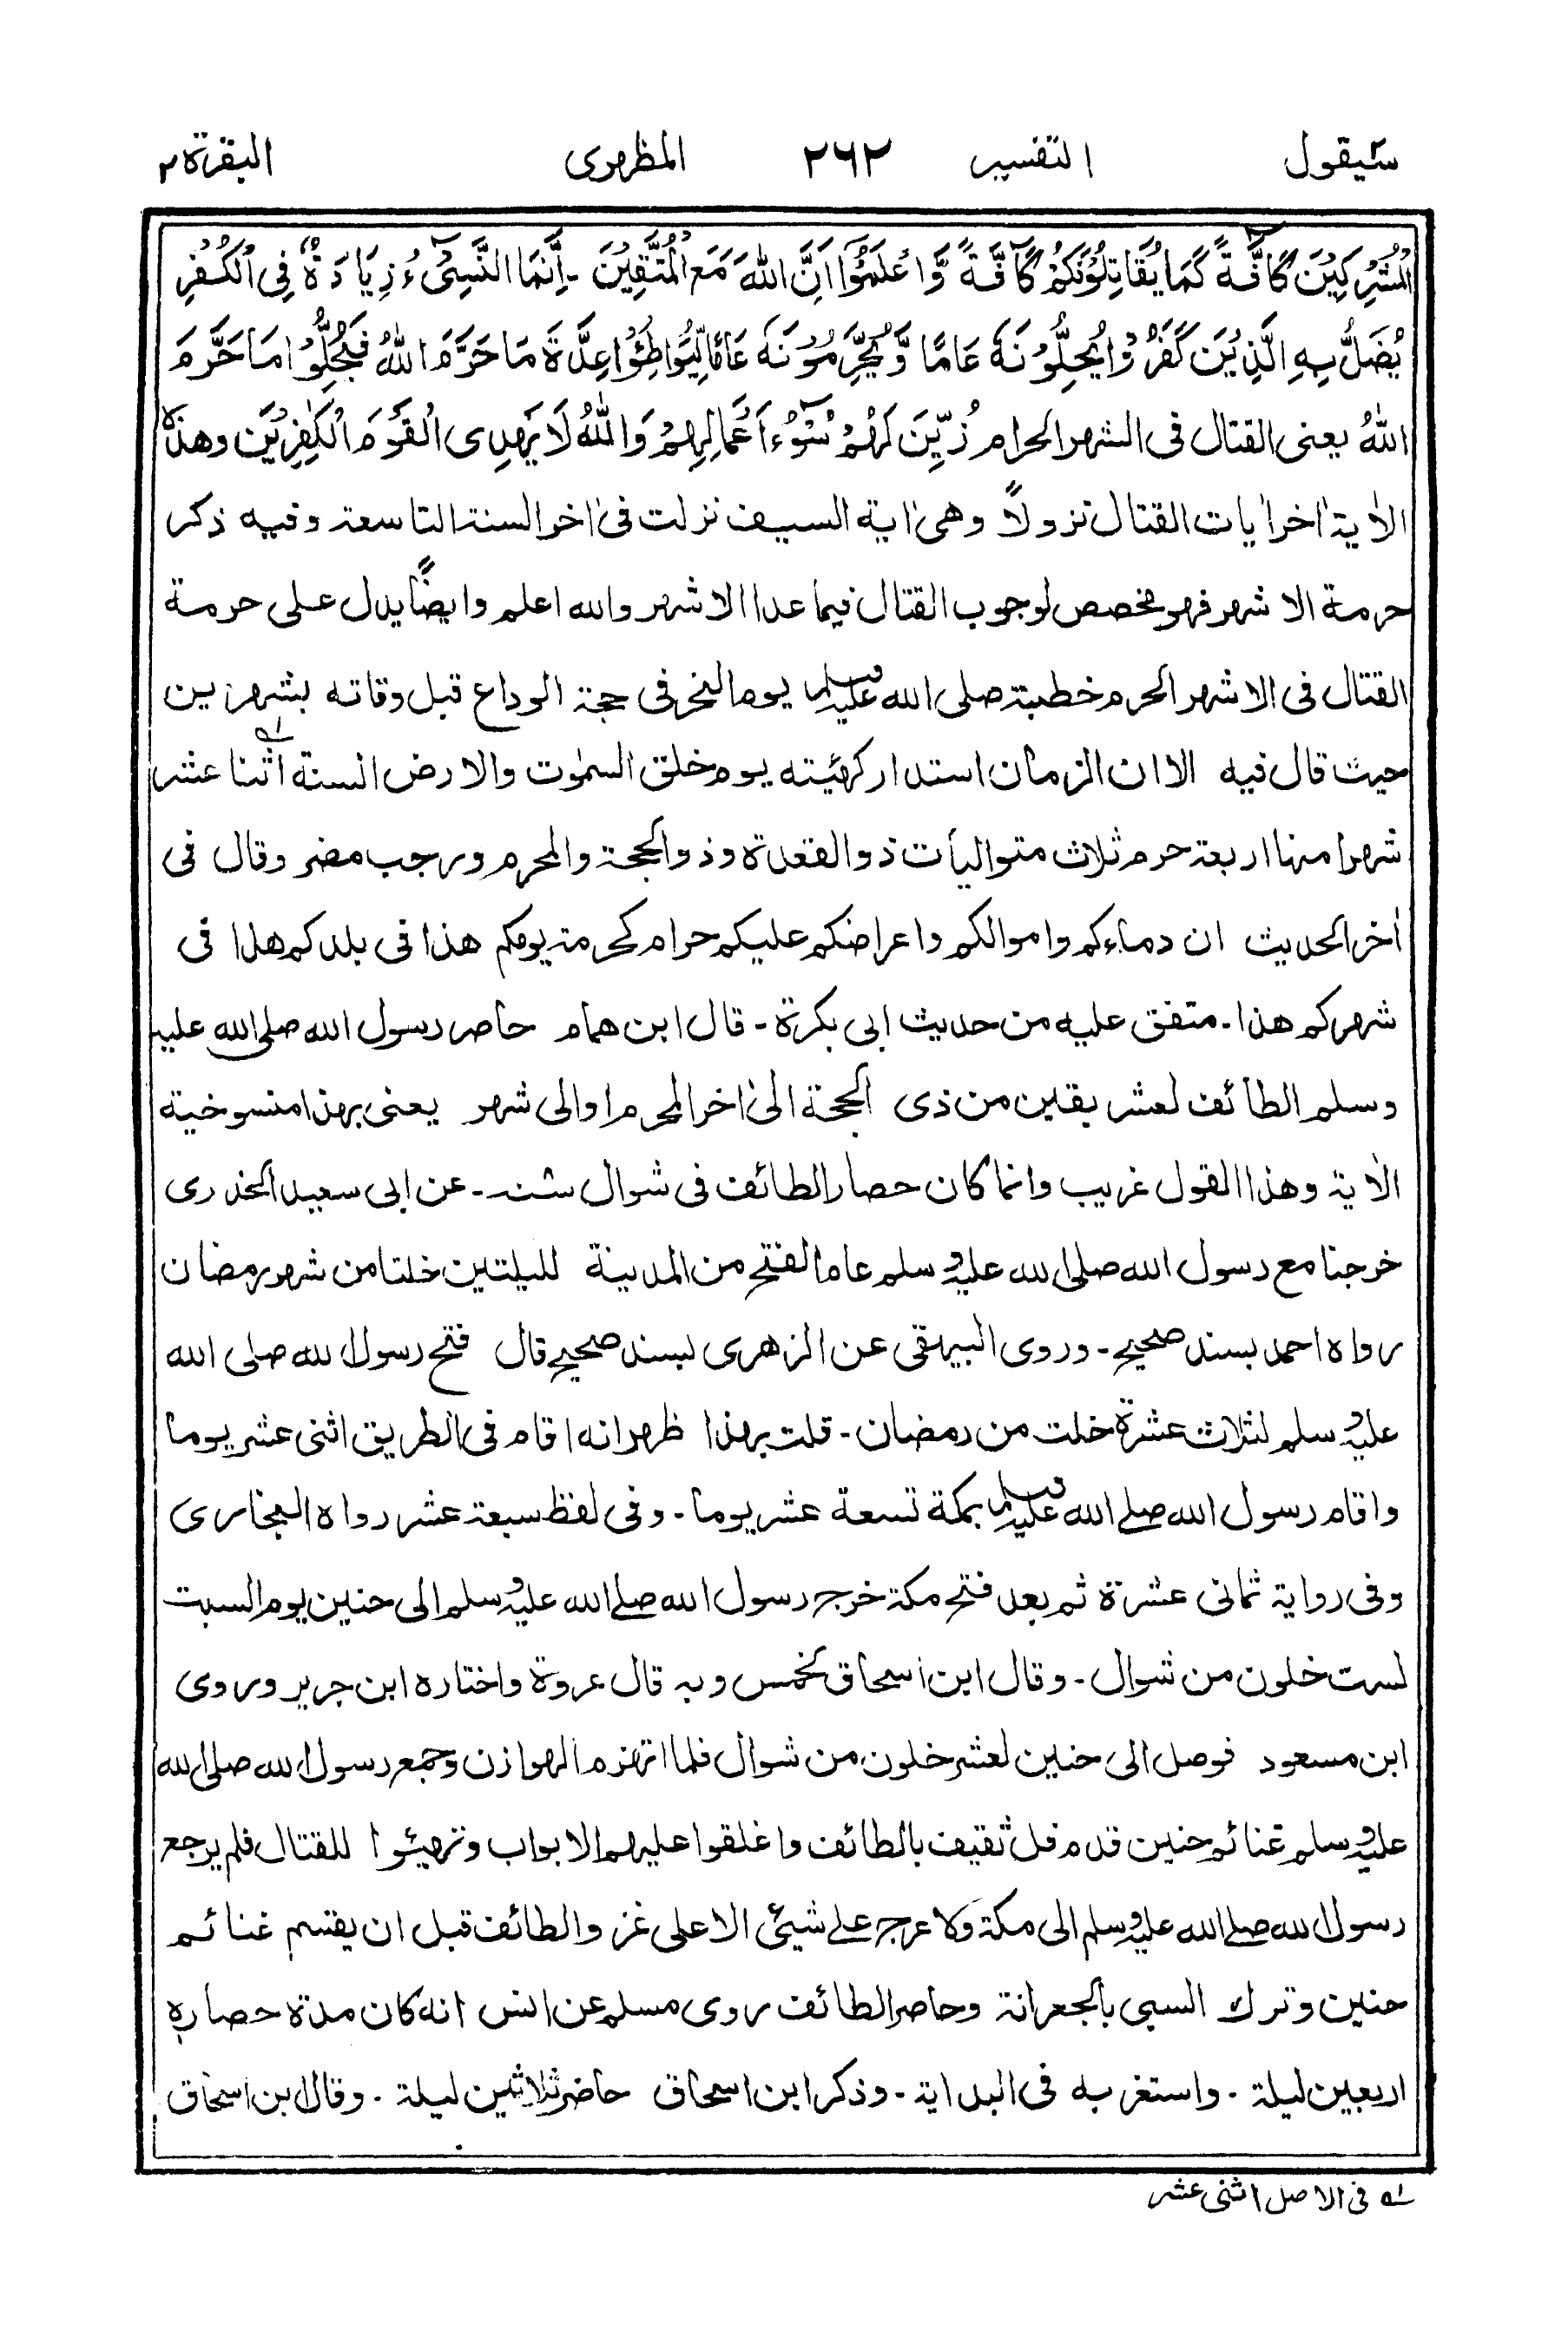 سيقول ٢ التفسير ٢٦٢ المظهرى البقرة ٢
الْمُشْرِكِيْنَ كَآفَّةً كَمَا يُقَاتِلُوْنَكُمْ كَآفَّةً وَّاعْلَمُوْٓا اَنَّ اللّٰهَ مَعَ الْمُتَّقِيْنَ - اِنَّمَا النَّسِيْٓءُ زِيَادَةٌ فِي الْكُفْرِ
يُضَلُّ بِهِ الَّذِيْنَ كَفَرُوْا يُحِلُّوْنَهٗ عَامًا وَّيُحَرِّمُوْنَهٗ عَامًا لِّيُوَاطِئُوْا عِدَّةَ مَا حَرَّمَ اللّٰهُ فَيُحِلُّوْا مَا حَرَّمَ
اللّٰهُ يعنى القتال فى الشهر الحرام زُيِّنَ لَهُمْ سُوْٓءُ اَعْمَالِهِمْ وَاللّٰهُ لَا يَهْدِى الْقَوْمَ الْكٰفِرِيْنَ وهذه
الاٰية اٰخر اٰيات القتال نزولاً وهى اٰية السيف نزلت فى اٰخر السنة التاسعة وفيه ذكر
حرمة الاشهر فهو مخصص لوجوب القتال فيما عدا الاشهر والله اعلم وايضًا يدل على حرمة
القتال فى الاشهر الحرم خطبته صلى الله عليه وسلم يوم النحر فى حجة الوداع قبل وفاته بشهرين
حيث قال فيه الا ان الزمان استدار كهيئته يوم خلق السمٰوت والارض السنة اثنا عشر ١ـه
شهرا منها اربعة حرم ثلاث متواليات ذو القعدة وذو الحجة والمحرم ورجب مضر وقال فى
اٰخر الحديث ان دماءكم واموالكم واعراضكم عليكم حرام كحرمة يومكم هذا فى بلدكم هذا فى
شهركم هذا - متفق عليه من حديث ابى بكرة - قال ابن همام حاصر رسول الله صلى الله عليه
وسلم الطائف لعشر بقين من ذى الحجة الىٰ اٰخر المحرم او الى شهر يعنى بهذا منسوخية
الاٰية وهذا القول غريب وانما كان حصار الطائف فى شوال سنة - عن ابى سعيد الخدرى
خرجنا مع رسول الله صلى الله عليه وسلم عام الفتح من المدينة لليلتين خلتا من شهر رمضان
رواه احمد بسند صحيح - وروى البيهقى عن الزهرى بسند صحيح قال فتح رسول الله صلى الله
عليه وسلم لثلاث عشرة خلت من رمضان - قلت بهذا ظهر انه اقام فى الطريق اثنى عشر يوما
واقام رسول الله صلى الله عليه وسلم بمكة تسعة عشر يوما - وفى لفظ سبعة عشر رواه البخارى
وفى رواية ثمانى عشرة ثم بعد فتح مكة خرج رسول الله صلى الله عليه وسلم الى حنين يوم السبت
لست خلون من شوال - وقال ابن اسحاق لخمس وبه قال عروة واختاره ابن جرير وروى
ابن مسعود فوصل الى حنين لعشر خلون من شوال فلما انهزم الهوازن وجمع رسول الله صلى الله
عليه وسلم غنائم حنين قدم فل ثقيف بالطائف واغلقوا عليهم الابواب وتهيئوا للقتال فلم يرجع
رسول الله صلى الله عليه وسلم الى مكة ولا عرج على شيئ الا على غزو الطائف قبل ان يقسم غنائم
حنين وترك السبى بالجعرانة وحاصر الطائف روى مسلم عن انس انه كان مدة حصاره
اربعين ليلة - واستغربه فى البداية - وذكر ابن اسحاق حاصر ثلاثين ليلة - وقال ابن اسحاق
١ـه فى الاصل اثنى عشر